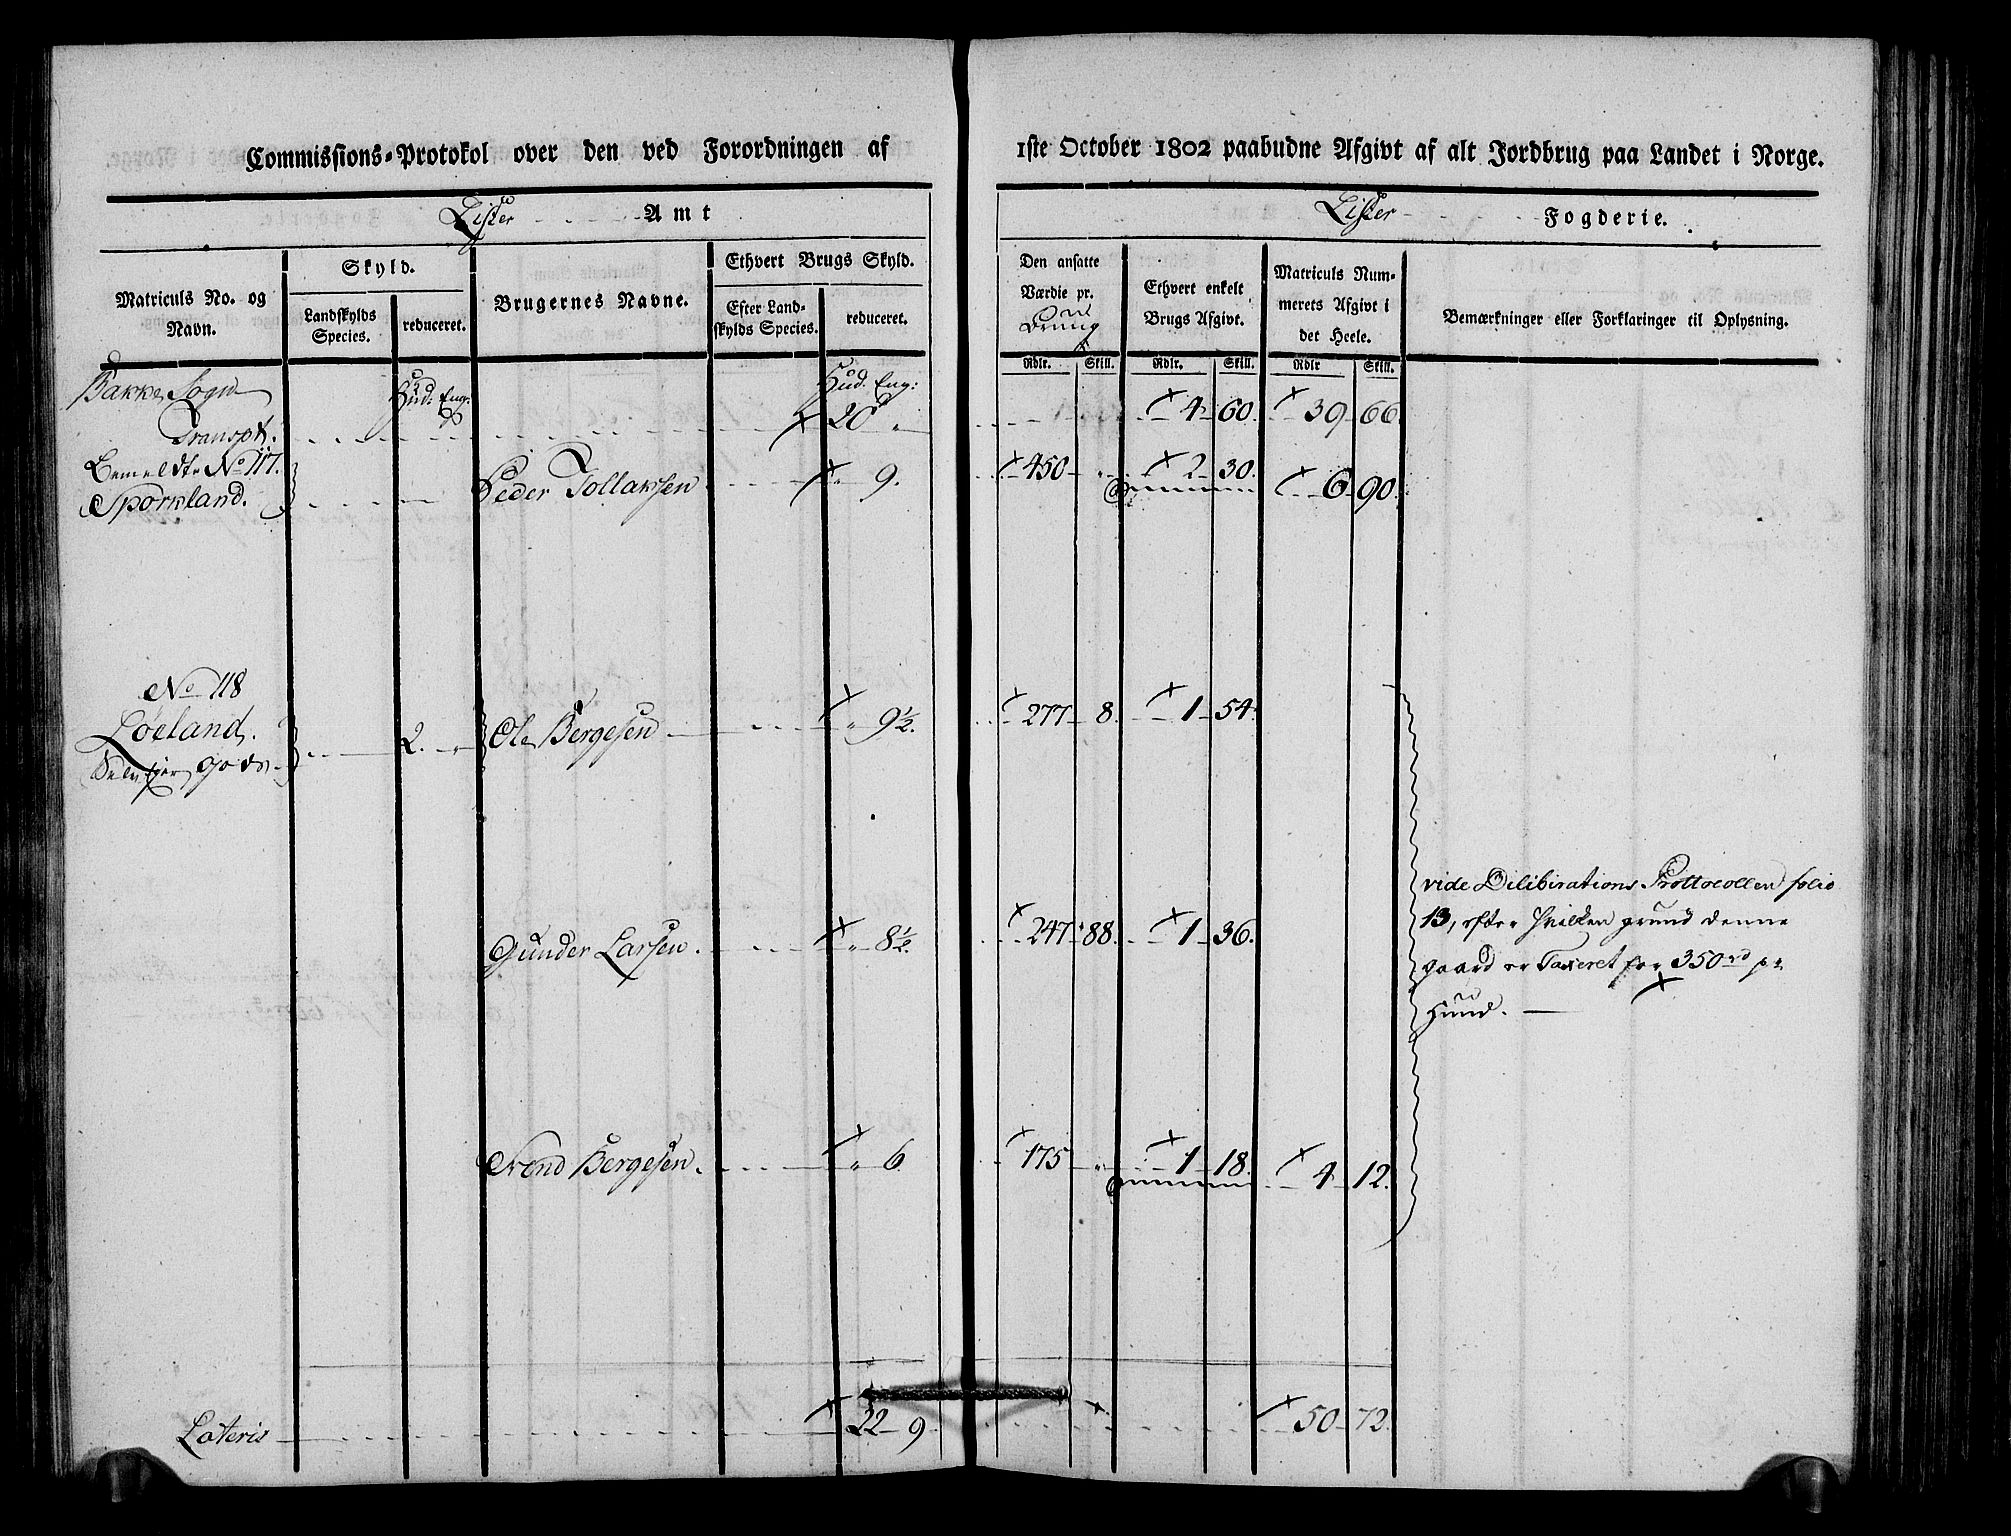 Commissions-Protokol over den ved Forordningen af 1ste October 1802 paabudne Afgivt af alt Jordbrug paa Landet i Norge.
Lister Amt
Lister Fogderie.
Matriculs No. og Navn.
Skyld.
Landskylds Species.
reduceret.
Brugernes Navne.
Ethvert Brugs Skyld.
Efter Landskylds Species.
reduceret.
Den ansatte Værdie pr.
Ethvert enkelt Brugs Afgivt.
Matriculs Nummerets Afgivt i det Heele.
Bemærkninger eller Forklaringer til Oplysning.
Rdlr. Skill. Rdlr. Skill. Rdlr Skill.
Bakke Sogn Hud. Eng: Hud. Eng:
Transpt. 20 " 4 60. 39 66.
Bemeldte No 117.
Sporkland. Peder Tollaksen " 9. 450 " 2 30. 6 90.
No 118
Løeland. 2. " Ole Bergesen " 9½. 277 8. 1 54.
Selvejer gods
Gunder Larsen. " 8½. 247 88. 1 36.
vide Dilibirations Prottocollen folio
13, efter hvilken grund denne
gaard er Taxeret for 350 rd pr
Huud.
Svend Bergesen. " 6 175 " 1 18. 4 12.
Lateris 22 9 50 72.